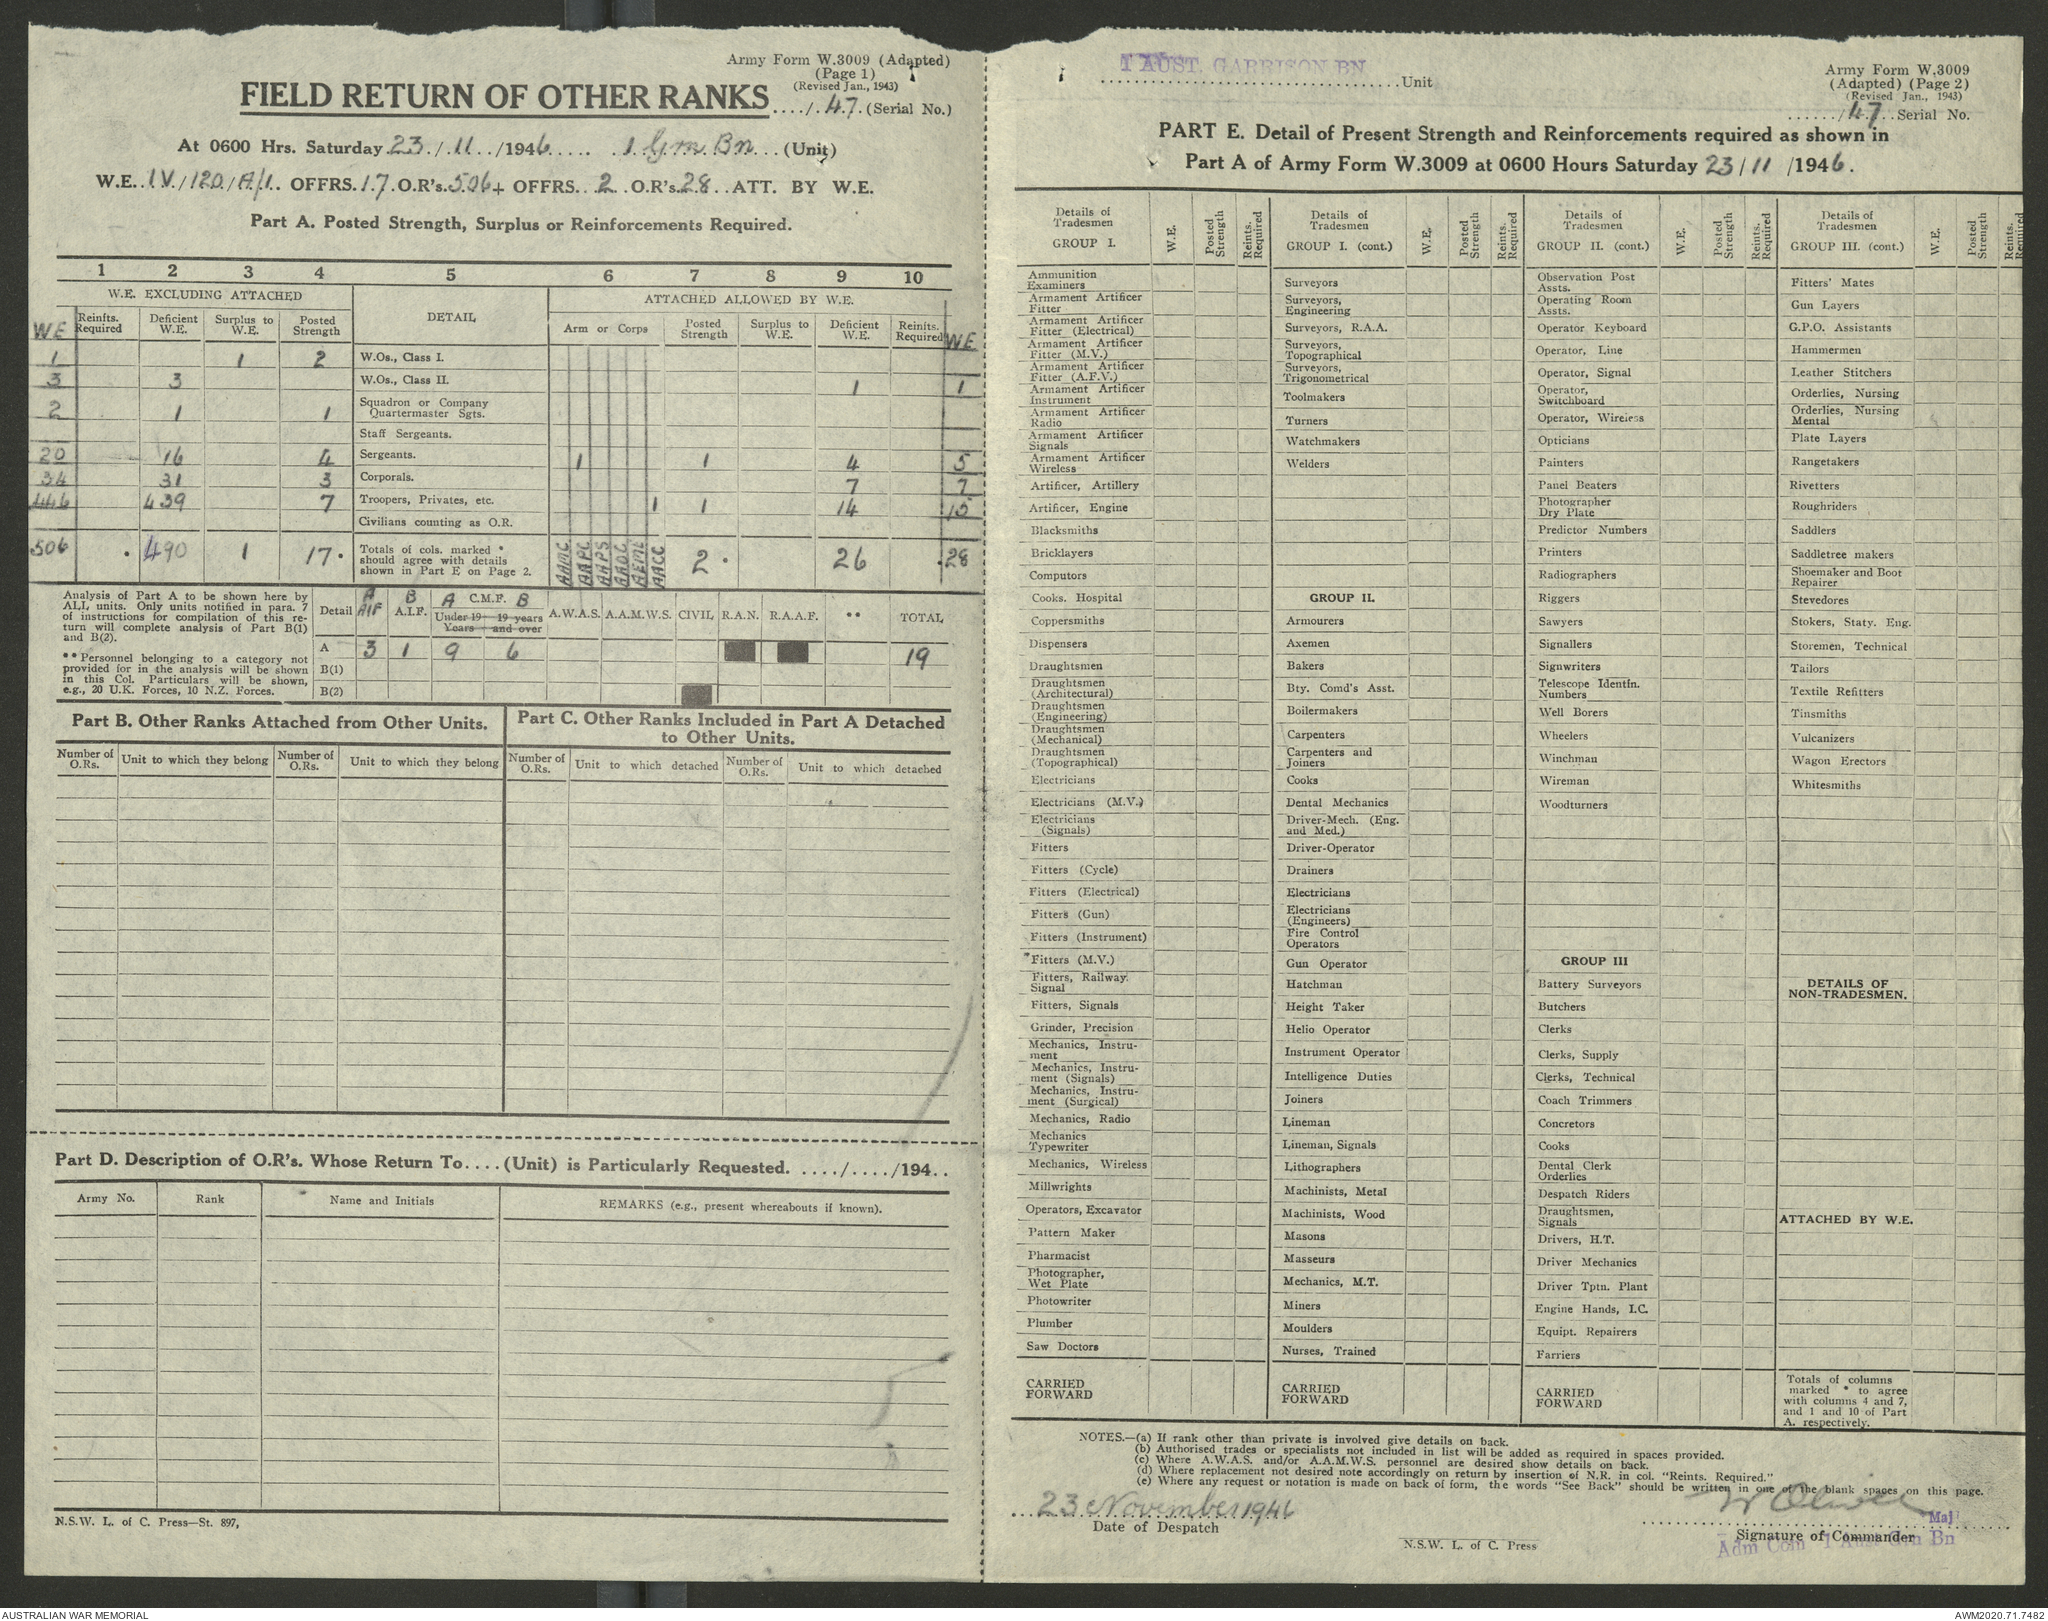 Army Form W.3009 (Adapted)
(Page 1)
(Revised Jan., 1943)
FIELD RETURN OF OTHER RANKS ..../.47. (Serial No.)
At 0600 Hrs. Saturday 23/.11../1946..... .1 Grn Bn...(Unit)
W.E..IV/120/A/1. OFFRS.17.O.R's.506+ OFFRS..2..O.R's.28..ATT. BY W.E.
Part A. Posted Strength, Surplus or Reinforcements Required.
1 2 3 4 5 6 7 8 9 10
W.E. EXCLUDING ATTACHED DETAIL ATTACHED ALLOWED BY W.E.
WE Reinfts. Required Deficient W.E. Surplus to W.E. Posted Strength Arm or Corps Posted Strength Surplus to W.E. Deficient W.E. Reinfts. Required WE
1 1 2 W.Os., Class I.
3 3 W.Os., Class II. 1 1
2 1 1 Squadron or Company Quartermaster Sgts.
Staff Sergeants.
20 16 4 Sergeants. 1 1 4 5
34 31 3 Corporals. 7 7
446 439 7 Troopers, Privates, etc. 1 1 14 15
Civilians counting as O.R.
506 • 490 1 17• Totals of cols. marked * should agree with details shown in Part E on Page 2. AAMC AAPC AAPS AAOC AEME AACC 2 • 26 •28
Analysis of Part A to be shown here by
ALL units. Only units notified in para. 7
of instructions for compilation of this re-
turn will complete analysis of Part B(1)
and B(2).
** Personnel belonging to a category not
provided for in the analysis will be shown
in this Col. Particulars will be shown,
e.g., 20 U.K. Forces, 10 N.Z. Forces.
Detail A AIF B A.I.F. A C.M.F. B Under 19 Years 19 years and over A.W.A.S. A.A.M.W.S. CIVIL R.A.N. R.A.A.F. ** TOTAL
A 3 1 9 6 19
B(1)
B(2)
Part B. Other Ranks Attached from Other Units.
Number of O.Rs. Unit to which they belong Number of O.Rs. Unit to which they belong
Part C. Other Ranks Included in Part A Detached
to Other Units.
Number of O.Rs. Unit to which detached Number of O.Rs. Unit to which detached
Part D. Description of O.R's. Whose Return To....(Unit) is Particularly Requested. ..../..../194..
Army No. Rank Name and Initials REMARKS (e.g., present whereabouts if known).
N.S.W. L. of C. Press—St. 897,
1 AUST. GARRISON BN
Unit
Army Form W.3009
(Adapted) (Page 2)
(Revised Jan., 1943)
....../47..Serial No.
PART E. Detail of Present Strength and Reinforcements required as shown in
Part A of Army Form W.3009 at 0600 Hours Saturday 23/11/1946.
Details of Tradesmen GROUP I. W.E. Posted Strength Reints. Required
Ammunition Examiners
Armament Artificer Fitter
Armament Artificer Fitter (Electrical)
Armament Artificer Fitter (M.V.)
Armament Artificer Fitter (A.F.V.)
Armament Artificer Instrument
Armament Artificer Radio
Armament Artificer Signals
Armament Artificer Wireless
Artificer, Artillery
Artificer, Engine
Blacksmiths
Bricklayers
Computors
Cooks, Hospital
Coppersmiths
Dispensers
Draughtsmen
Draughtsmen (Architectural)
Draughtsmen (Engineering)
Draughtsmen (Mechanical)
Draughtsmen (Topographical)
Electricians
Electricians (M.V.)
Electricians (Signals)
Fitters
Fitters (Cycle)
Fitters (Electrical)
Fitters (Gun)
Fitters (Instrument)
Fitters (M.V.)
Fitters, Railway Signal
Fitters, Signals
Grinder, Precision
Mechanics, Instru-ment
Mechanics, Instru-ment (Signals)
Mechanics, Instru-ment (Surgical)
Mechanics, Radio
Mechanics Typewriter
Mechanics, Wireless
Millwrights
Operators, Excavator
Pattern Maker
Pharmacist
Photographer, Wet Plate
Photowriter
Plumber
Saw Doctors
CARRIED FORWARD
Details of Tradesmen GROUP I. (cont.) W.E. Posted Strength Reints. Required
Surveyors
Surveyors, Engineering
Surveyors, R.A.A.
Surveyors, Topographical
Surveyors, Trigonometrical
Toolmakers
Turners
Watchmakers
Welders
GROUP II.
Armourers
Axemen
Bakers
Bty. Comd's Asst.
Boilermakers
Carpenters
Carpenters and Joiners
Cooks
Dental Mechanics
Driver-Mech. (Eng. and Med.)
Driver-Operator
Drainers
Electricians
Electricians (Engineers)
Fire Control Operators
Gun Operator
Hatchman
Height Taker
Helio Operator
Instrument Operator
Intelligence Duties
Joiners
Lineman
Lineman, Signals
Lithographers
Machinists, Metal
Machinists, Wood
Masons
Masseurs
Mechanics, M.T.
Miners
Moulders
Nurses, Trained
CARRIED FORWARD
Details of Tradesmen GROUP II. (cont.) W.E. Posted Strength Reints. Required
Observation Post Assts.
Operating Room Assts.
Operator Keyboard
Operator, Line
Operator, Signal
Operator, Switchboard
Operator, Wireless
Opticians
Painters
Panel Beaters
Photographer Dry Plate
Predictor Numbers
Printers
Radiographers
Riggers
Sawyers
Signallers
Signwriters
Telescope Identfn. Numbers
Well Borers
Wheelers
Winchman
Wireman
Woodturners
GROUP III
Battery Surveyors
Butchers
Clerks
Clerks, Supply
Clerks, Technical
Coach Trimmers
Concretors
Cooks
Dental Clerk Orderlies
Despatch Riders
Draughtsmen, Signals
Drivers, H.T.
Driver Mechanics
Driver Tptn. Plant
Engine Hands, I.C.
Equipt. Repairers
Farriers
CARRIED FORWARD
Details of Tradesmen GROUP III. (cont.) W.E. Posted Strength Reints. Required
Fitters' Mates
Gun Layers
G.P.O. Assistants
Hammermen
Leather Stitchers
Orderlies, Nursing
Orderlies, Nursing Mental
Plate Layers
Rangetakers
Rivetters
Roughriders
Saddlers
Saddletree makers
Shoemaker and Boot Repairer
Stevedores
Stokers, Staty. Eng.
Storemen, Technical
Tailors
Textile Refitters
Tinsmiths
Vulcanizers
Wagon Erectors
Whitesmiths
DETAILS OF NON-TRADESMEN.
ATTACHED BY W.E.
Totals of columns
marked * to agree
with columns 4 and 7,
and 1 and 10 of Part
A. respectively.
NOTES.—(a) If rank other than private is involved give details on back.
(b) Authorised trades or specialists not included in list will be added as required in spaces provided.
(c) Where A.W.A.S. and/or A.A.M.W.S. personnel are desired show details on back.
(d) Where replacement not desired note accordingly on return by insertion of N.R. in col. "Reints. Required."
(e) Where any request or notation is made on back of form, the words "See Back" should be written in one of the blank spaces on this page.
23 November 1946
Date of Despatch
N.S.W. L. of C. Press
Maj
Signature of Commander
Adm Com 1 Aust Grn Bn
AUSTRALIAN WAR MEMORIAL
AWM2020.71.7482